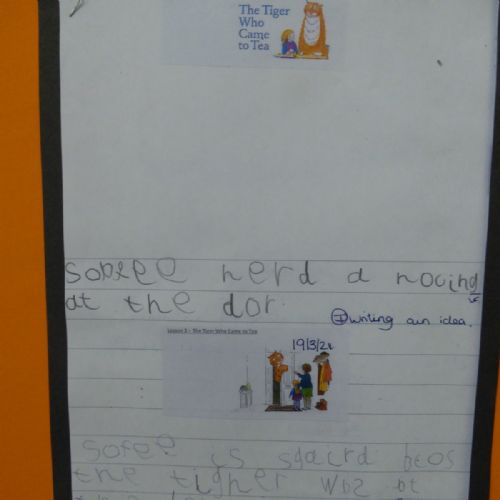 The Tiger
Who
Came
to Tea
sofeee herd a nocing
at the dor.
I writing an idea.
Lesson 3 - The Tiger Who Came to Tea
19/3/21
Sofee is sgaird bcos
the tigher wos at